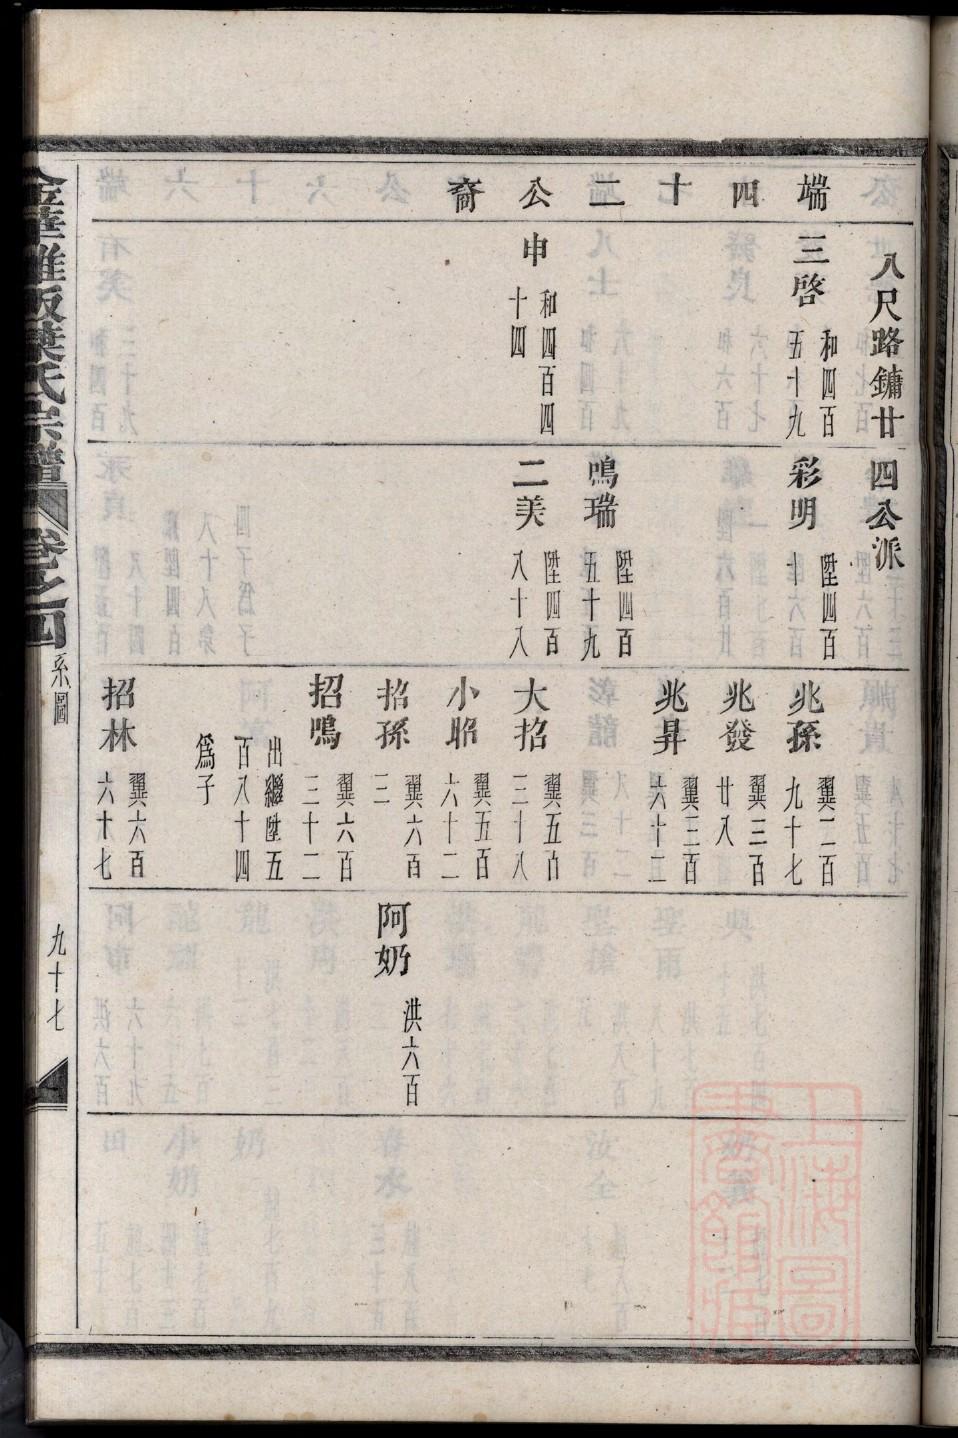 端四十二公裔
八尺路鏞廿四公派
三啓
和四百五十九
申
和四百四十四
彩明
陞四百十
鳴瑞
陞四百五十九
二美
陞四百八十八
兆孫
翼二百九十七
兆發
翼三百廿八
兆昇
翼三百六十二
大招
翼五百三十八
小昭
翼五百六十二
招孫
翼六百三
招鳴
翼六百三十二
出繼陞五百八十四
為子
招林
翼六百六十七
阿奶
洪六百
金華雅畈葉氏宗譜
卷之四
系圖
九十七
上海圖書館藏